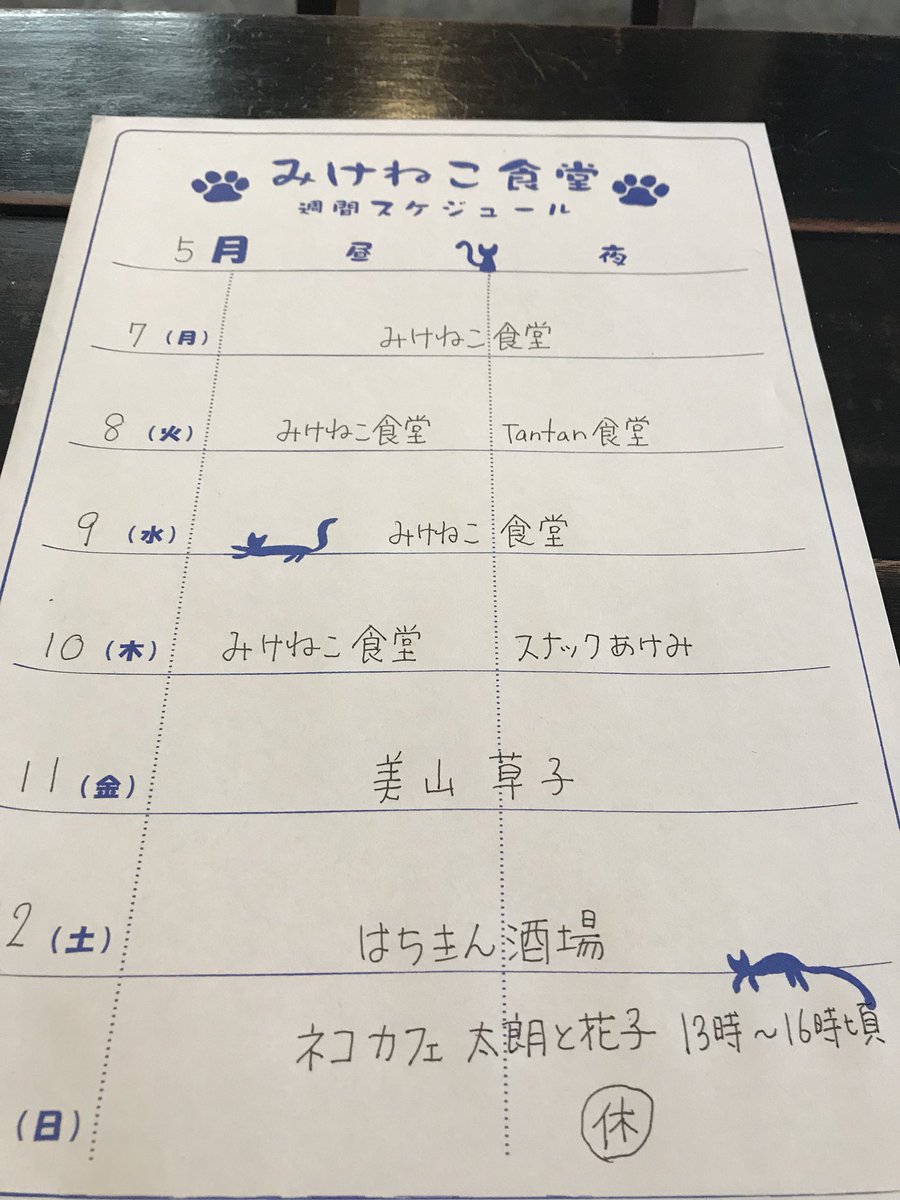 みけねこ食堂
週間スケジュール
5月 昼 夜
7 (月) みけねこ食堂
8 (火) みけねこ食堂 Tantan食堂
9 (水) みけねこ食堂
10 (木) みけねこ食堂 スナックあけみ
11 (金) 美山草子
2 (土) はちきん酒場
ネコカフェ 太朗と花子 13時～16時頃
(日) 休